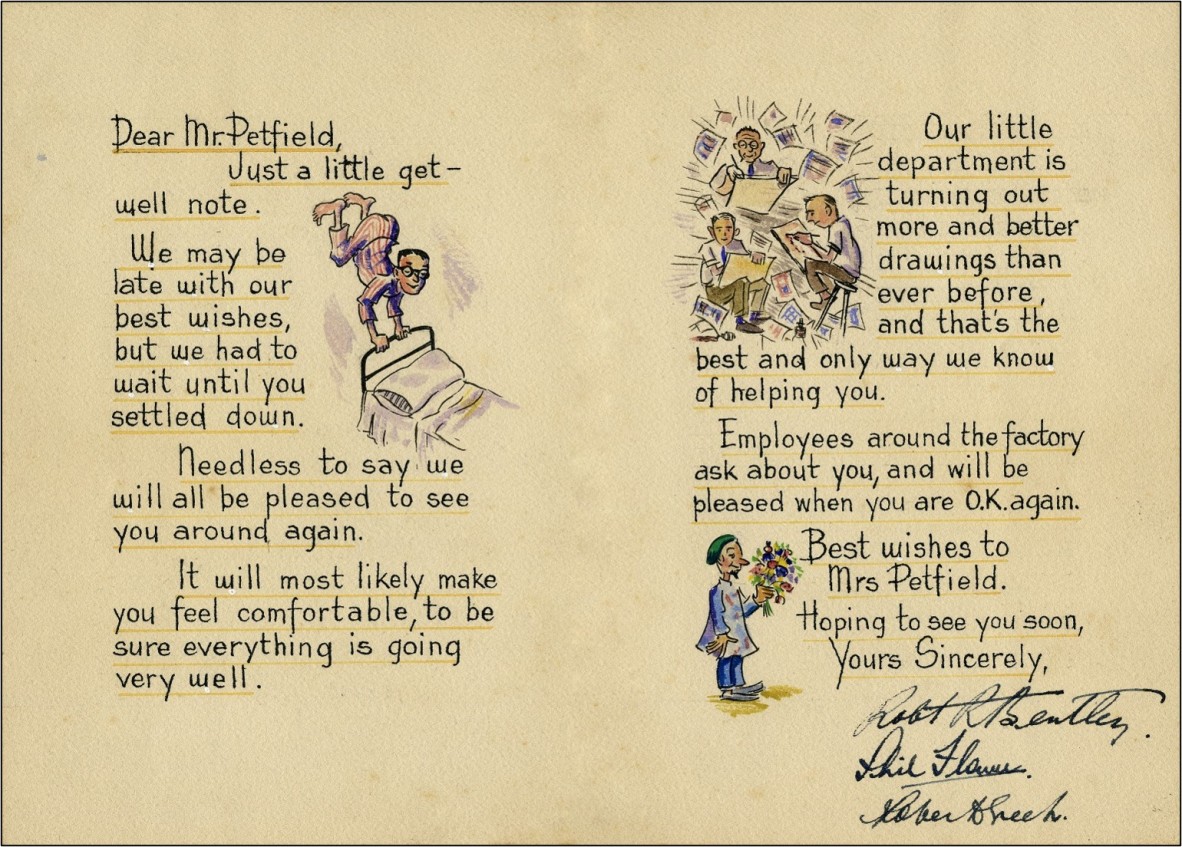 Dear Mr. Petfield,
Just a little get-
well note.
We may be
late with our
best wishes,
but we had to
wait until you
settled down.
Needless to say we
will all be pleased to see
you around again.
It will most likely make
you feel comfortable, to be
sure everything is going
very well.
Our little
department is
turning out
more and better
drawings than
ever before,
and that's the
best and only way we know
of helping you.
Employees around the factory
ask about you, and will be
pleased when you are O.K. again.
Best wishes to
Mrs Petfield.
Hoping to see you soon,
Yours Sincerely,
Robt R Bentley.
Phil
Robert